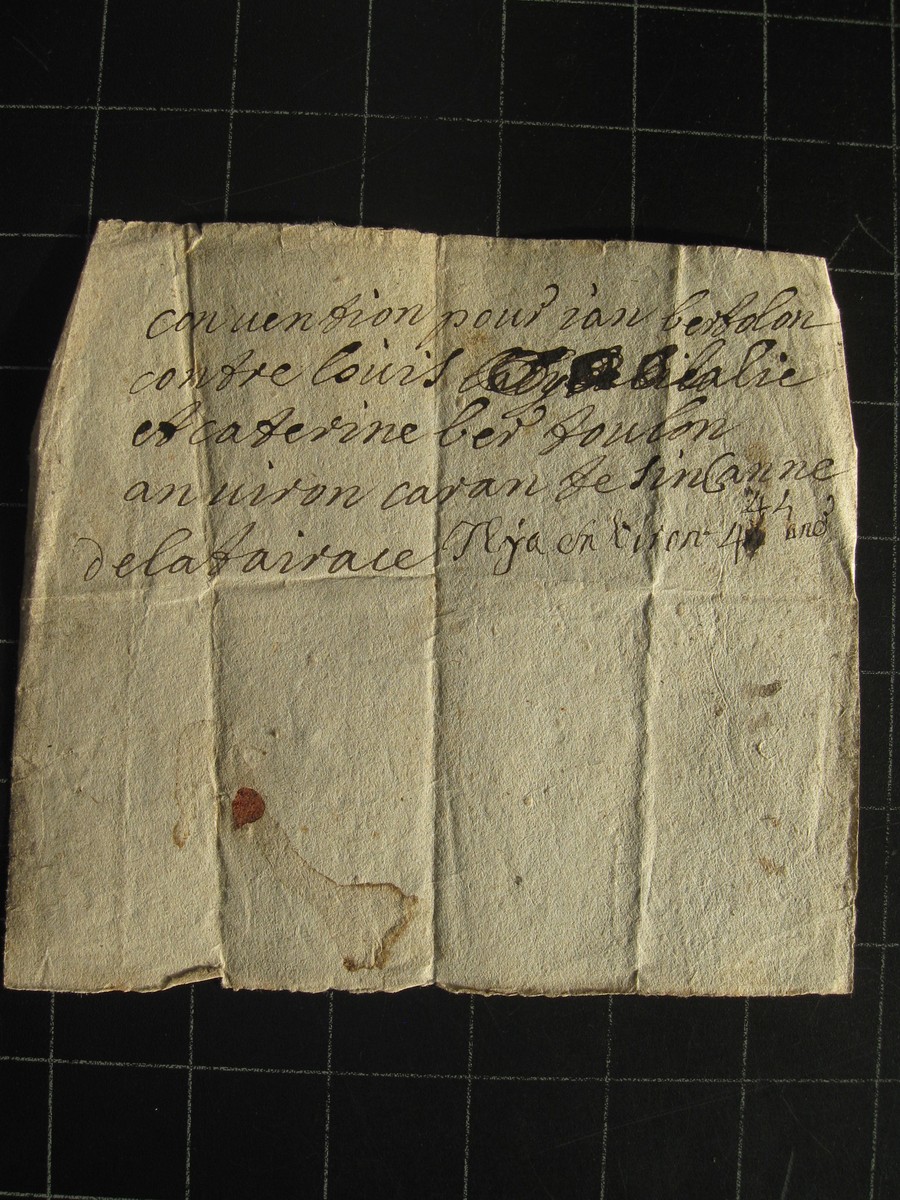 convention pour ian bertolon
contre louis bilalie
et caterine ber toulon
an uiron caran te sinc anne
44
de la tairace Il y a en viron 4 ans